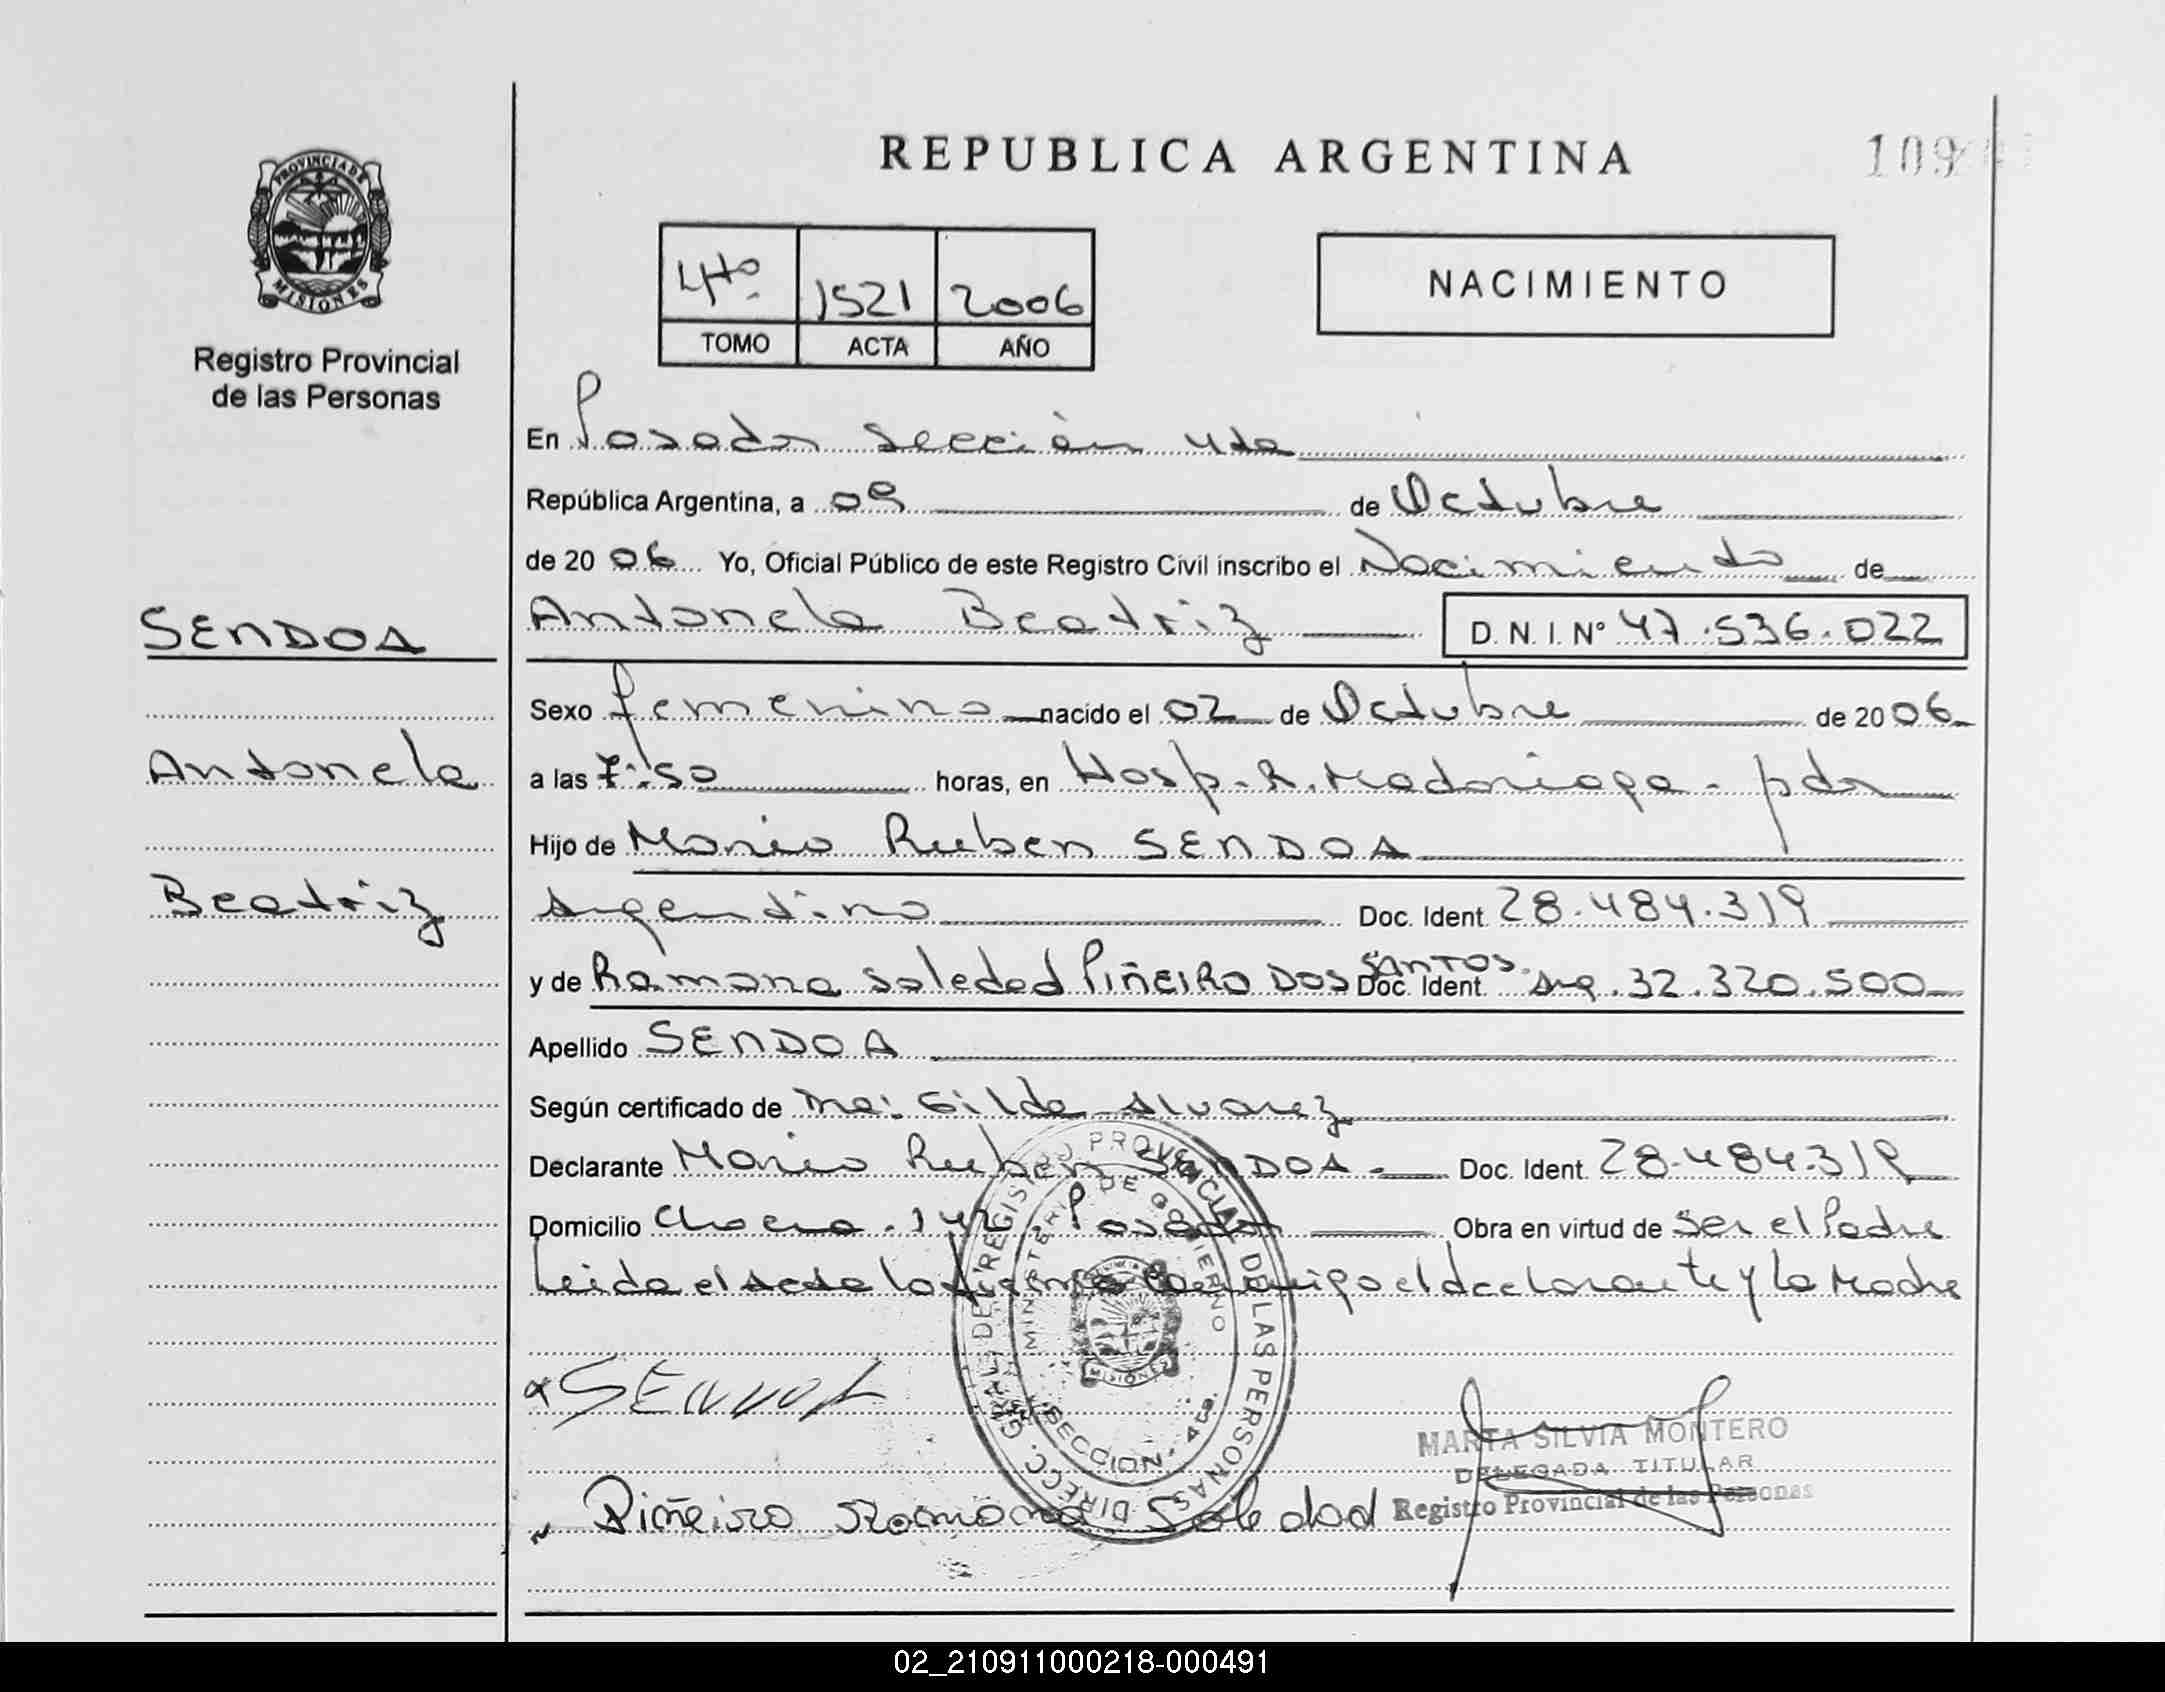 REPUBLICA ARGENTINA
109
PROVINCIA DE
MISIONES
Registro Provincial
de las Personas
4to. 1521 2006
TOMO ACTA AÑO
NACIMIENTO
En Posadas Sección 4ta
República Argentina, a 09 de Octubre
de 2006 Yo, Oficial Público de este Registro Civil inscribo el Nacimiento de
SENDOA
Antonela Beatriz D. N. I. Nº 47.536.022
Sexo femenino nacido el 02 de Octubre de 2006
Antonela
a las 7:50 horas, en Hosp. R. Madariaga - pdas
Hijo de Mario Ruben SENDOA
Beatriz
Argentino Doc. Ident. 28.484.319
y de Ramona Soledad PIÑEIRO DOS SANTOS Doc. Ident. Arg. 32.320.500
Apellido SENDOA
Según certificado de Ma: Gilda Alvarez
Declarante Mario Ruben SENDOA Doc. Ident. 28.484.319
Domicilio Chacra 142 Posadas Obra en virtud de Ser el Padre
Leida el Acta la firma conmigo el declarante y la Madre
DIRECC. GRAL. DE REGISTRO PROVINCIAL DE LAS PERSONAS
MINISTERIO DE GOBIERNO
MISIONES
SECCION - 4ta.
SENDOA
MARTA SILVIA MONTERO
DELEGADA TITULAR
Registro Provincial de las Personas
Piñeiro Ramona Soledad
02_210911000218-000491